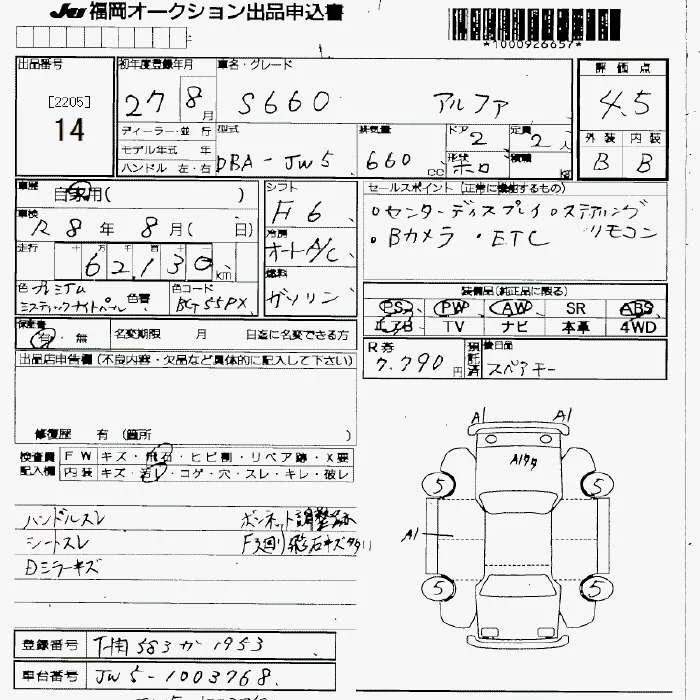 JU 福岡オークション出品申込書
*1000926657*
出品番号
[2205]
14
初年度登録年月
27 8月
車名・グレード
S660 アルファ
評価点
4.5
外装 内装
B B
ディーラー・並 行
モデル年式 年
ハンドル 左・右
型式
DBA-JW5
排気量
660 cc
ドア
2
定員
2人
形状
ホロ
積載
kg
車歴
自家用( )
車検
R 8年 8月( 日)
走行
十 万 千 百 十
62,130 km
色 プレミアム
ミスティックナイトパール
色替
色コード
BG55PX
シフト
F6
冷房
オートA/C
燃料
ガソリン
セールスポイント (正常に機能するもの)
・センターディスプレイ ・ステアリング
・Bカメラ ・ETC リモコン
装備品(純正品に限る)
PS PW AW SR ABS
エアB TV ナビ 本革 4WD
保証書
有・無
名変期限 月 日迄に名変できる方
R券
7.790円
預託済
後日品
スペアキー
出品店申告欄 (不良内容・欠品など具体的に記入して下さい)
修復歴 有 (箇所 )
検査員
記入欄
FW キズ・飛石・ヒビ割・リペア跡・X要
内装 キズ・汚レ・コゲ・穴・スレ・キレ・破レ
ハンドルスレ ボンネット調整跡
シートスレ F廻り飛石キズタッチ
Dミラーキズ
A1 A1
A1
5 5
A1
5 5
登録番号
583か1953
車台番号
JW5-1003768.